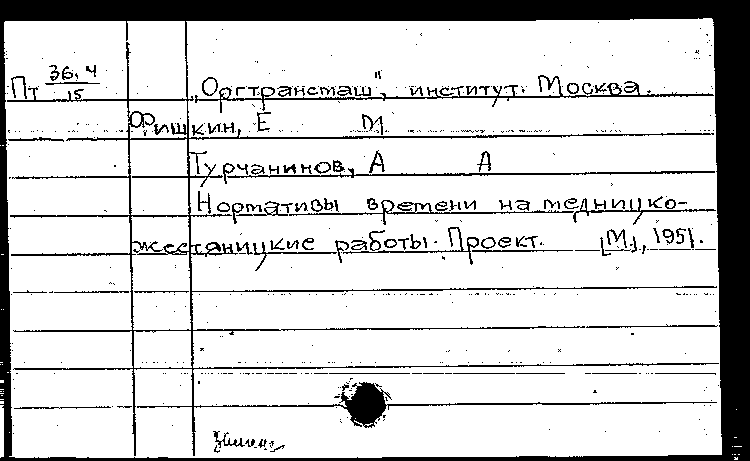 Пт 36.4/15 „Оргтрансмаш", институт. Москва.
Фишкин, Е М
Турчанинов, А А
Нормативы времени на медницко-
жестяницкие работы. Проект. [М], 1951.